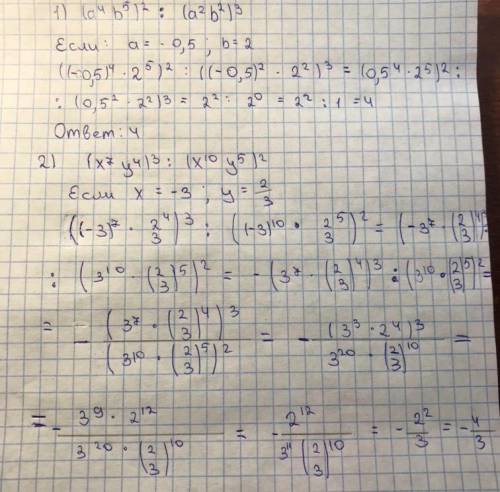 1) (a⁴ b⁵)² : (a² b²)³
Если: a = - 0,5 ; b = 2
((-0,5)⁴ · 2⁵)² : ((-0,5)² · 2²)³ = (0,5⁴ · 2⁵)² :
: (0,5² · 2²)³ = 2² : 2⁰ = 2² : 1 = 4
Ответ: 4
2) (x⁷ y⁴)³ : (x¹⁰ y⁵)²
Если x = -3 ; y = 2/3
((-3)⁷ · 2/3⁴)³ : ((-3)¹⁰ · 2/3⁵)² = (-3⁷ · (2/3)⁴)³
: (3¹⁰ · (2/3)⁵)² = - (3⁷ · (2/3)⁴)³ : (3¹⁰ · (2/3)⁵)² =
= - (3⁷ · (2/3)⁴)³ / (3¹⁰ · (2/3)⁵)² = - (3³ · 2⁴)³ / 3²⁰ · (2/3)¹⁰ =
= - 3⁹ · 2¹² / 3²⁰ · (2/3)¹⁰ = - 2¹² / 3¹¹ (2/3)¹⁰ = - 2²/3 = - 4/3